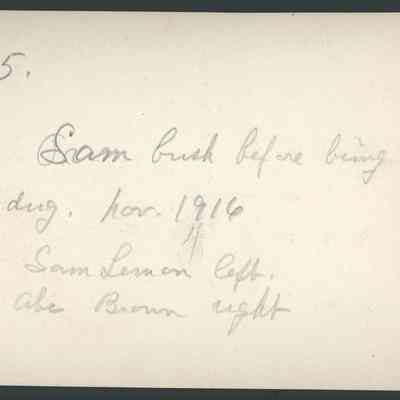 5.
Sam bush before being
dug. Nov. 1916
4
Sam Lemon left.
Abe Brown right